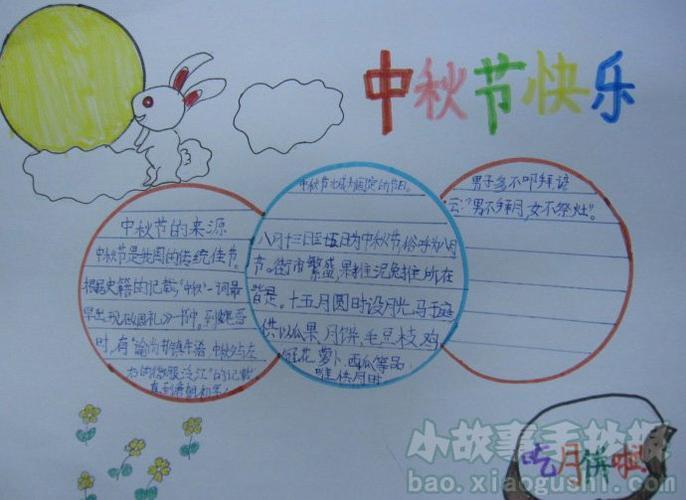 中秋节快乐
中秋节的来源
中秋节是我国的传统佳节。
根据史籍的记载，"中秋"一词最
早出现《周礼》一书中。到魏晋
时，有"谕尚书镇牛渚，中秋夕与左
右微服泛江"的记载
直到唐朝初年
中秋节才成为固定的节日。
八月十三日至十五日为中秋节，俗呼为八月
节。街市繁盛，果摊泥兔摊所在
皆是。十五月圆时设月光马于庭
供以瓜果、月饼、毛豆枝、鸡
冠花、萝卜、西瓜等品
唯供月时
男子多不叩拜谚
云："男不拜月，女不祭灶"。
吃月饼啦
小故事手抄报
bao.xiaogushi1.com